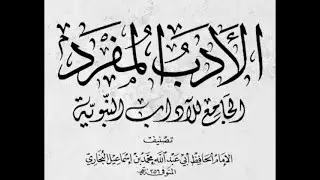 الأدَبُ المُفْرَد
الجَامِعُ لِلآدَابِ النَّبَوِيَّة
تَصْنِيف
الإِمَام الحَافِظ أَبِي عَبْد اللَّه مُحَمَّد بْن إِسْمَاعِيل البُخَارِي
المتوفى ٢٥٦ هـ